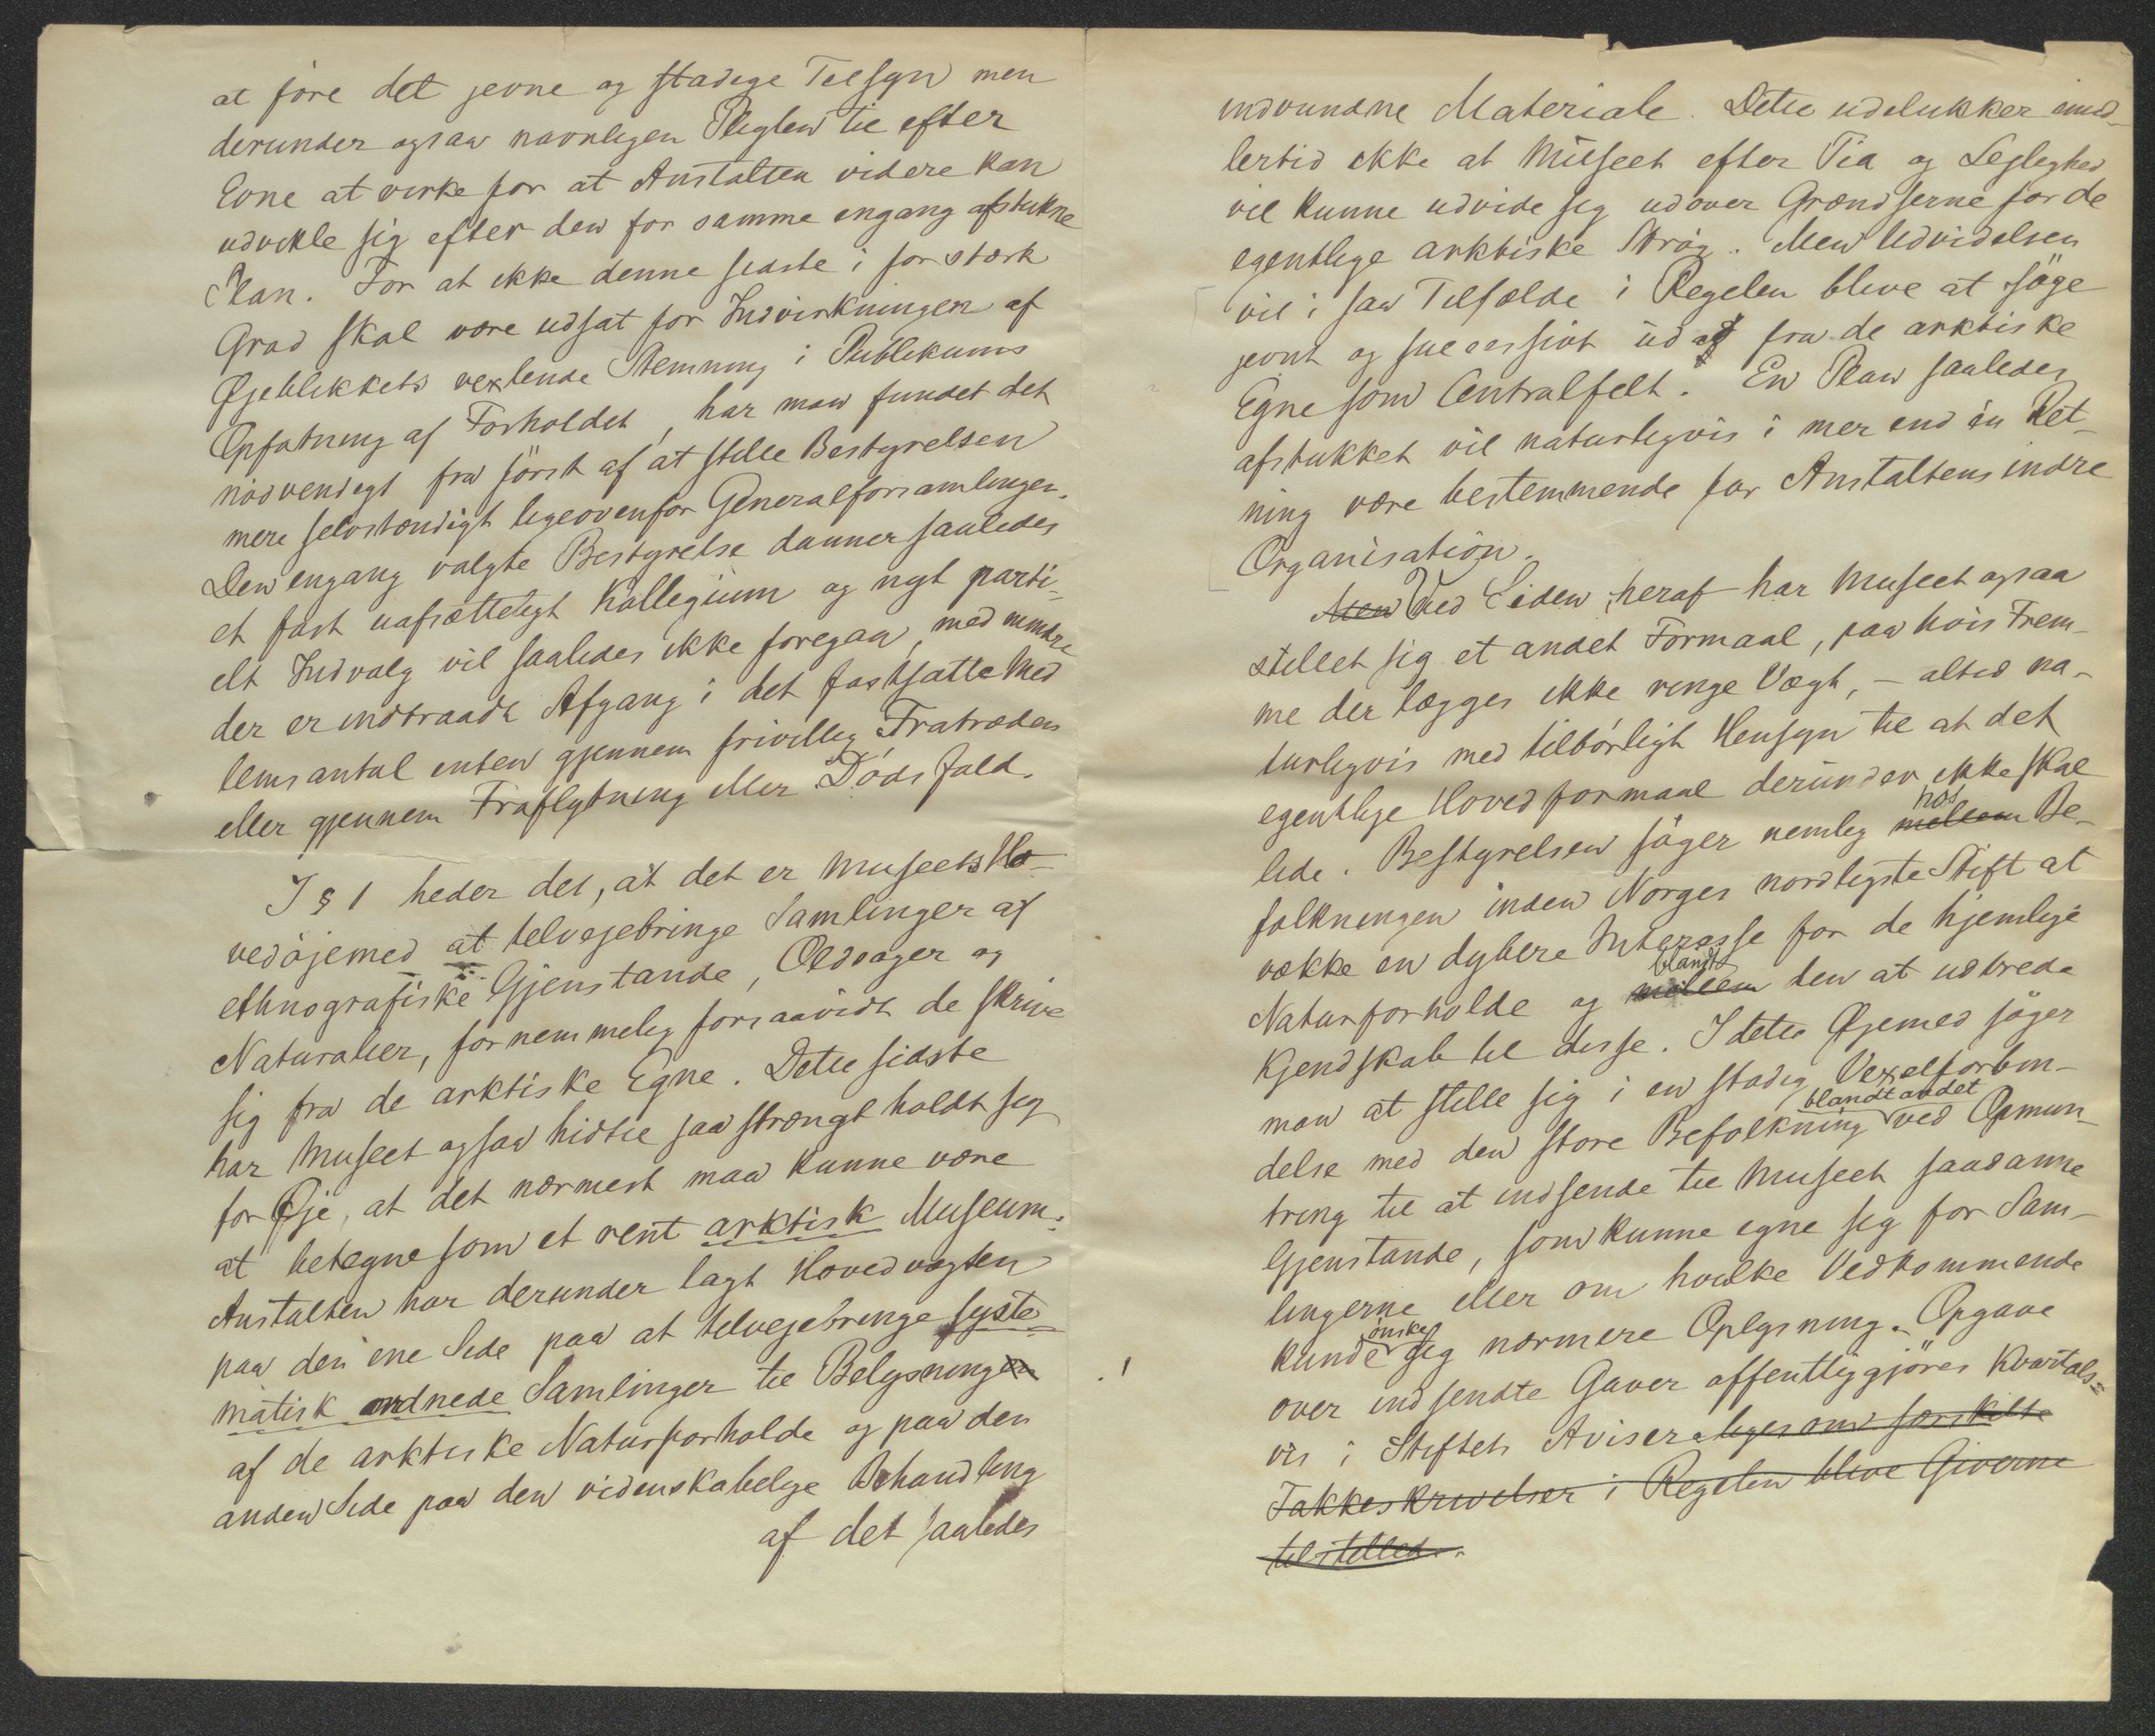 at føre det jevne og stadige Tilsyn men
derunder ogsaa navnligen Pligten til efter
Evne at virke for at Anstalten videre kan
udvikle sig efter den for samme engang afstukne
Plan. For at ikke denne sidste i for stærk
Grad skal være udsat for Indvirkningen af
Øjeblikkets vexlende Stemning i Publikums
Opfatning af Forholdet, har man fundet det
nödvendigt fra först af at stille Bestyrelsen
mere selvstændigt ligeovenfor Generalforsamlingen.
Den engang valgte Bestyrelse danner saaledes
et fast uafsætteligt Kollegium og nyt parti-
elt Indvalg vil saaledes ikke foregaa, med mindre
der er indtraadt Afgang i det fastsatte Med
lemsantal enten gjennem frivillig Fratræden
eller gjennem Fraflytning eller Dödsfald.
I § 1 heder det, at det er Museets Ho-
vedöjemed at tilvejebringe Samlinger af
ethnografiske Gjenstande, Oldsager og
Naturalier, fornemmelig forsaavidt de skrive
sig fra de arktiske Egne. Dette sidste
har Museet ogsaa hidtil saa strængt holdt sig
for Øje, at det nærmest maa kunne være
at betegne som et rent arktisk Museum:
Anstalten har derunder lagt Hovedvægten
paa den ene Side paa at tilvejebringe syste-
matisk ordnede Samlinger til Belysningen
af de arktiske Naturforholde og paa den
anden Side paa den videnskabelige Behandling
af det saaledes
indvundne Materiale. Dette udelukker imid-
lertid ikke at Museet efter Tid og Leilighed
vil kunne udvide sig udover Grændserne for de
egentlige arktiske Strög. Men Udvidelsen
vil i saa Tilfælde i Regelen blive at söge
jevnt og successivt ud af fra de arktiske
Egne som Centralfelt. En Plan saaledes
afstukket vil naturligvis i mer end én Ret-
ning være bestemmende for Anstaltens indre
Organisation.
Men Ved Siden heraf har Museet ogsaa
stillet sig et andet Formaal, paa hvis Frem-
me der lægges ikke ringe Vægt, – altid na-
turligvis med tilbörligt Hensyn til at det
egentlige Hovedformaal derunder ikke skal
lide. Bestyrelsen söger nemlig mellem hos Be-
folkningen inden Norges nordligste Stift at
vække en dybere Interesse for de hjemlige
Naturforholde og mellem blandt den at udbrede
Kjendskab til disse. I dette Øjemed söger
man at stille sig i en stadig Vexelforbin-
delse med den store Befolkning blandt andet ved Opmun-
tring til at indsende til Museet saadanne
Gjenstande, som kunne egne sig for Sam-
lingerne eller om hvilke Vedkommende
kunde önske sig nærmere Oplysning. Opgave
over indsendte Gaver offentliggjöres Kvartals-
vis i Stiftets Aviser ligesom særskilte
Takkeskrivelser i Regelen blive Giverne
tilstillede.